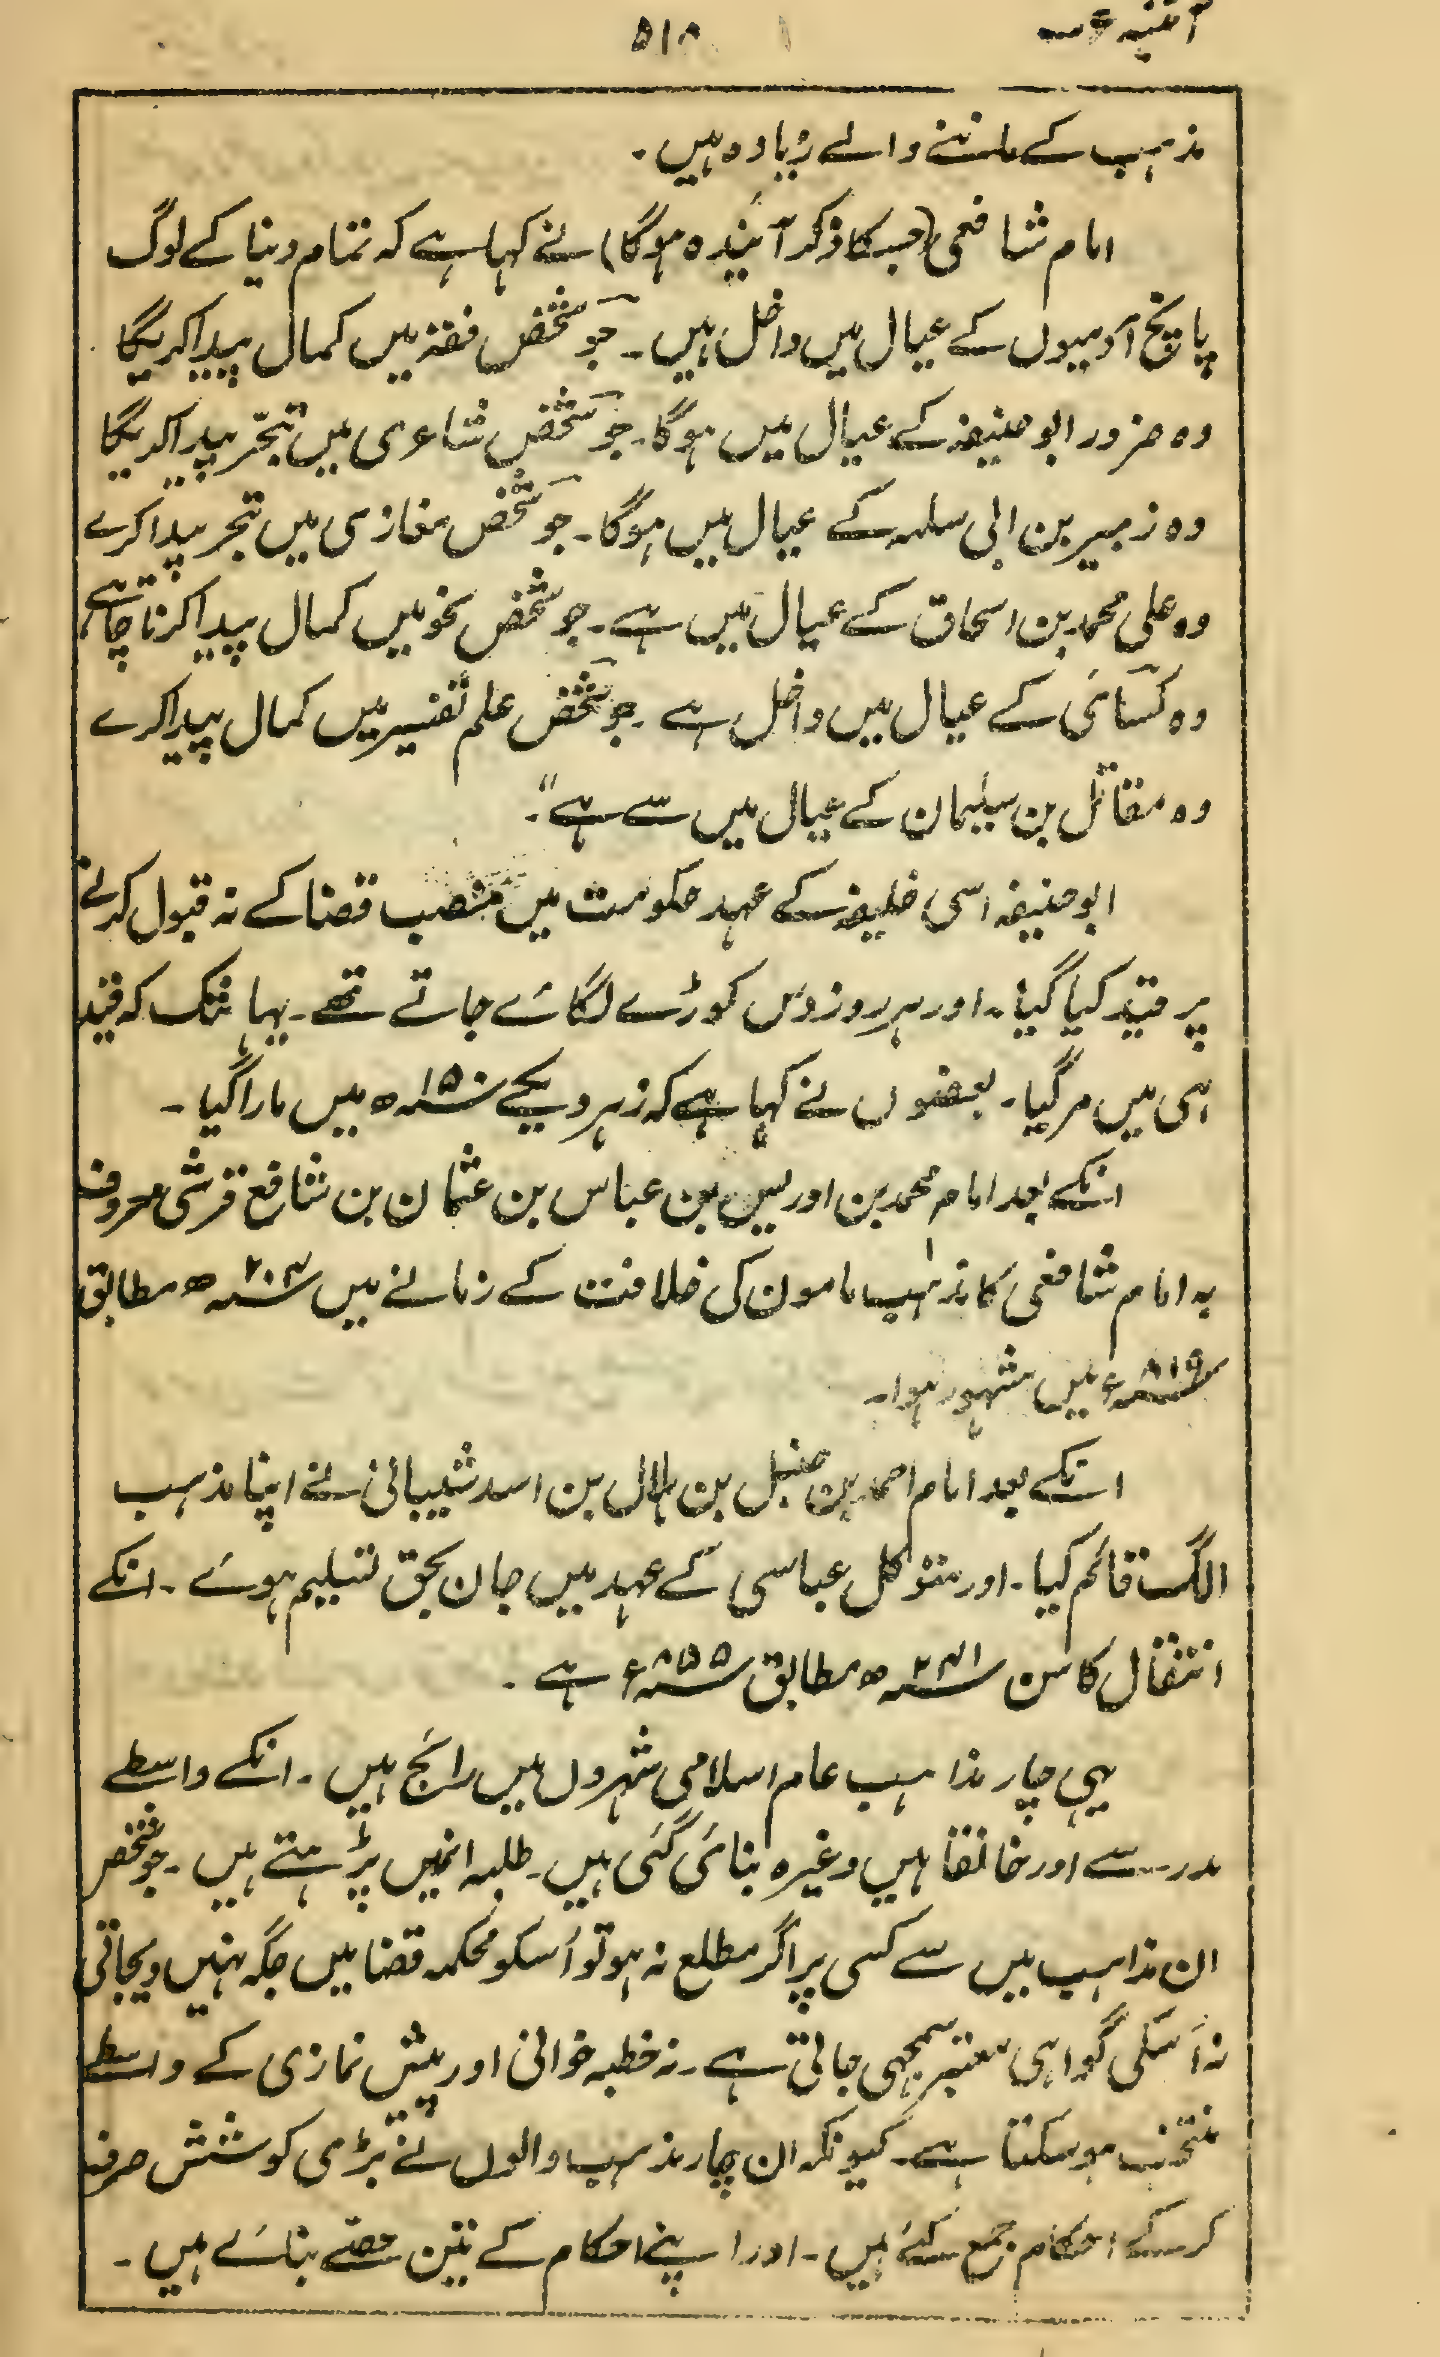 آئینہ عرب ۵۱۸
مذہب کے ماننے والے زیادہ ہیں۔
امام شافعی (جسکا ذکر آیندہ ہوگا) نے کہا ہے کہ تمام دنیا کے لوگ
پانچ آدمیوں کے عیال میں داخل ہیں۔ جو شخص فقہ میں کمال پیدا کریگا
وہ ضرور ابو حنیفہ کے عیال میں ہوگا۔ جو شخص شاعری میں تبحّر پیدا کریگا
وہ زہیر بن ابی سلمہ کے عیال میں ہوگا۔ جو شخص مغازی میں تبحر پیدا کرے
وہ علی محمد بن اسحاق کے عیال میں ہے۔ جو شخص نحو میں کمال پیدا کرنا چاہے
وہ کسّائی کے عیال میں داخل ہے۔ جو شخص علم تفسیر میں کمال پیدا کرے
وہ مقاتل بن سلیمان کے عیال میں سے ہے"۔
ابو حنیفہ اسی خلیفہ کے عہد حکومت میں منصب قضا کے نہ قبول کرنے
پر قید کیا گیا۔ اور ہر روز دس کوڑے لگائے جاتے تھے۔ یہانتک کہ قید
ہی میں مر گیا۔ بعضوں نے کہا ہے کہ زہر دیکے ۱۵۰ھ میں مارا گیا۔
انکے بعد امام محمد بن ادریس بن عباس بن عثمان بن شافع قرشی معروف
بہ امام شافعی کا مذہب مامون کی خلافت کے زمانے میں ۲۰۴ھ مطابق
۸۱۹ء میں مشہور ہوا۔
انکے بعد امام احمد بن حنبل بن ہلال بن اسد شیبانی نے اپنا مذہب
الگ قائم کیا۔ اور متوکل عباسی کے عہد میں جان بحق تسلیم ہوئے۔ انکے
انتقال کا سن ۲۴۱ھ مطابق ۸۵۵ء ہے۔
یہی چار مذاہب عام اسلامی شہروں میں رائج ہیں۔ انکے واسطے
مدرسے اور خانقاہیں وغیرہ بنائی گئی ہیں۔ طلبہ انمیں پڑہتے ہیں۔ جو شخص
ان مذاہب میں سے کسی پر اگر مطلع نہ ہو تو اُسکو محکمہ قضا میں جگہ نہیں دیجاتی
نہ اُسکی گواہی معتبر سمجہی جاتی ہے۔ نہ خطبہ خوانی اور پیش نمازی کے واسطے
منتخب ہو سکتا ہے۔ کیونکہ ان چار مذہب والوں نے بڑی کوشش صرف
کر کے احکام جمع کئے ہیں۔ اور اپنے احکام کے تین حصّے بنائے ہیں۔